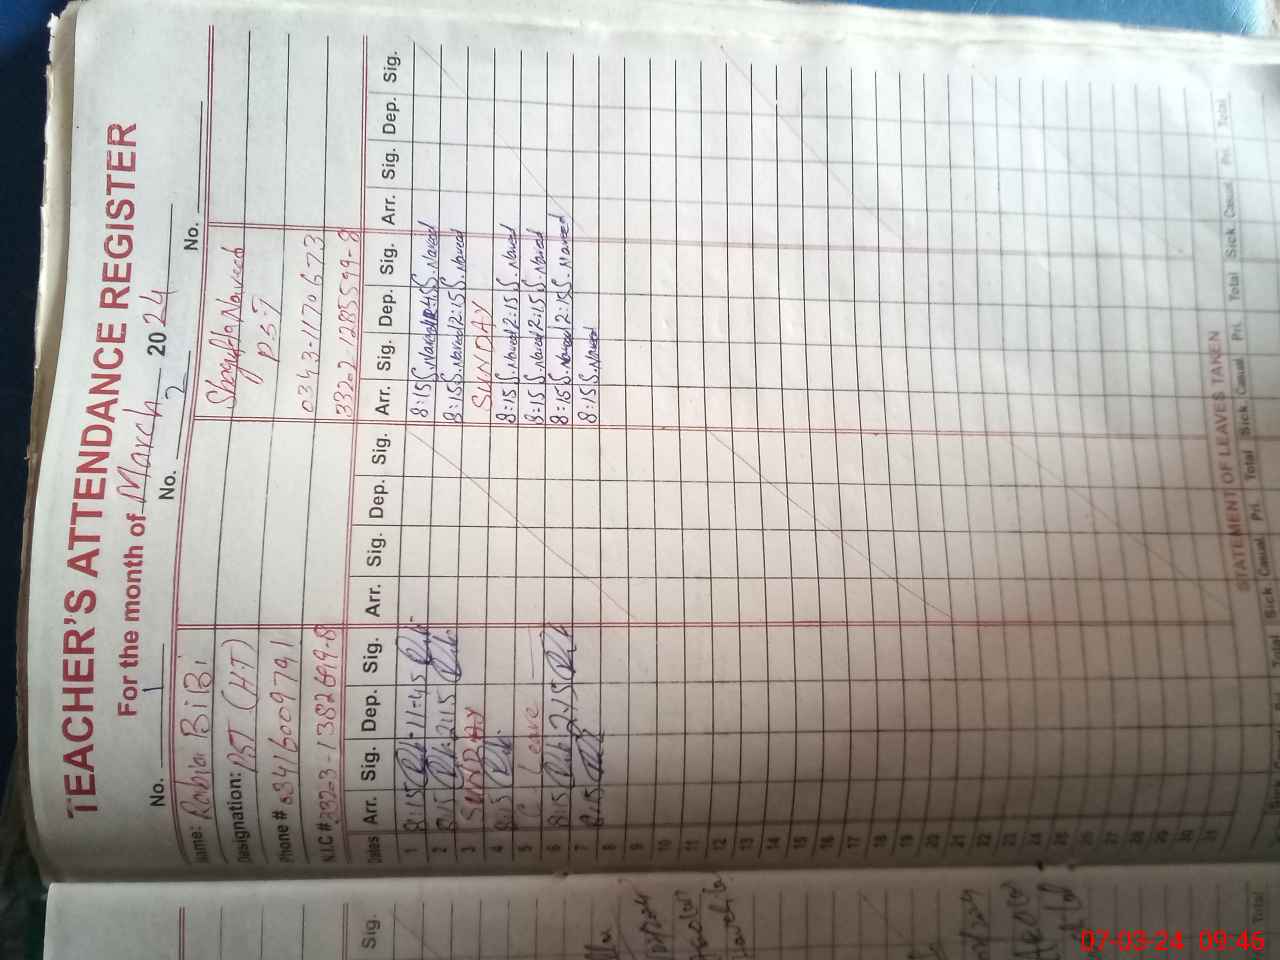 TEACHER'S ATTENDANCE REGISTER
For the month of March 2024
No. 1 No. 2 No.
Name: Rabia BiBi Shagufta Naveed
Designation: PST (HT) P.S.T
Phone # 03416009791 0343-1170673
N.I.C # 33202-1285599-8
Dates Arr. Sig. Dep. Sig. Arr. Sig. Dep. Sig. Arr. Sig. Dep. Sig. Arr. Sig. Dep. Sig.
1 8:15 11:45 8:15 S.Naveed S.Naveed
2 8:15 2:15 8:15 S.Naveed 2:15 S.Naveed
3 SUNDAY SUNDAY
4 8:15 8:15 S.Naveed 2:15 S.Naveed
5 C Leave 8:15 S.Naveed 2:15 S.Naveed
6 8:15 2:15 8:15 S.Naveed 2:15 S.Naveed
7 8:15 8:15 S.Naveed
8
9
10
11
12
13
14
15
16
17
18
19
20
21
22
23
24
25
26
27
28
29
30
31
STATEMENT OF LEAVES TAKEN
Sick Casual Pri. Total Sick Casual Pri. Total Sick Casual Pri. Total
Sig.
Total
07-03-24 09:46